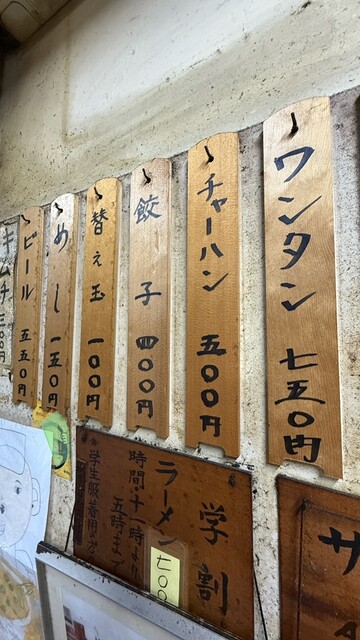 ワンタン 七五〇円
チャーハン 五〇〇円
餃子 四〇〇円
替え玉 一〇〇円
めし 一五〇円
ビール 五五〇円
キムチ 三〇〇円
学割
ラーメン 七〇〇
時間・十一時より
五時まで
学生服着用の方
サ